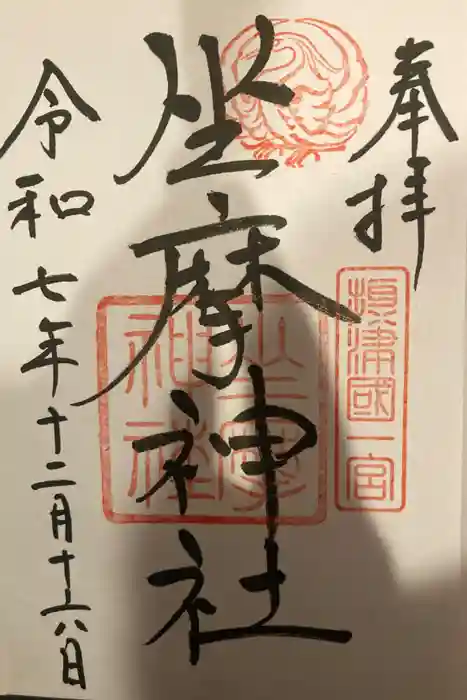 奉拝
攝津國一宮
坐摩神社
坐摩
神社
令和七年十二月十六日